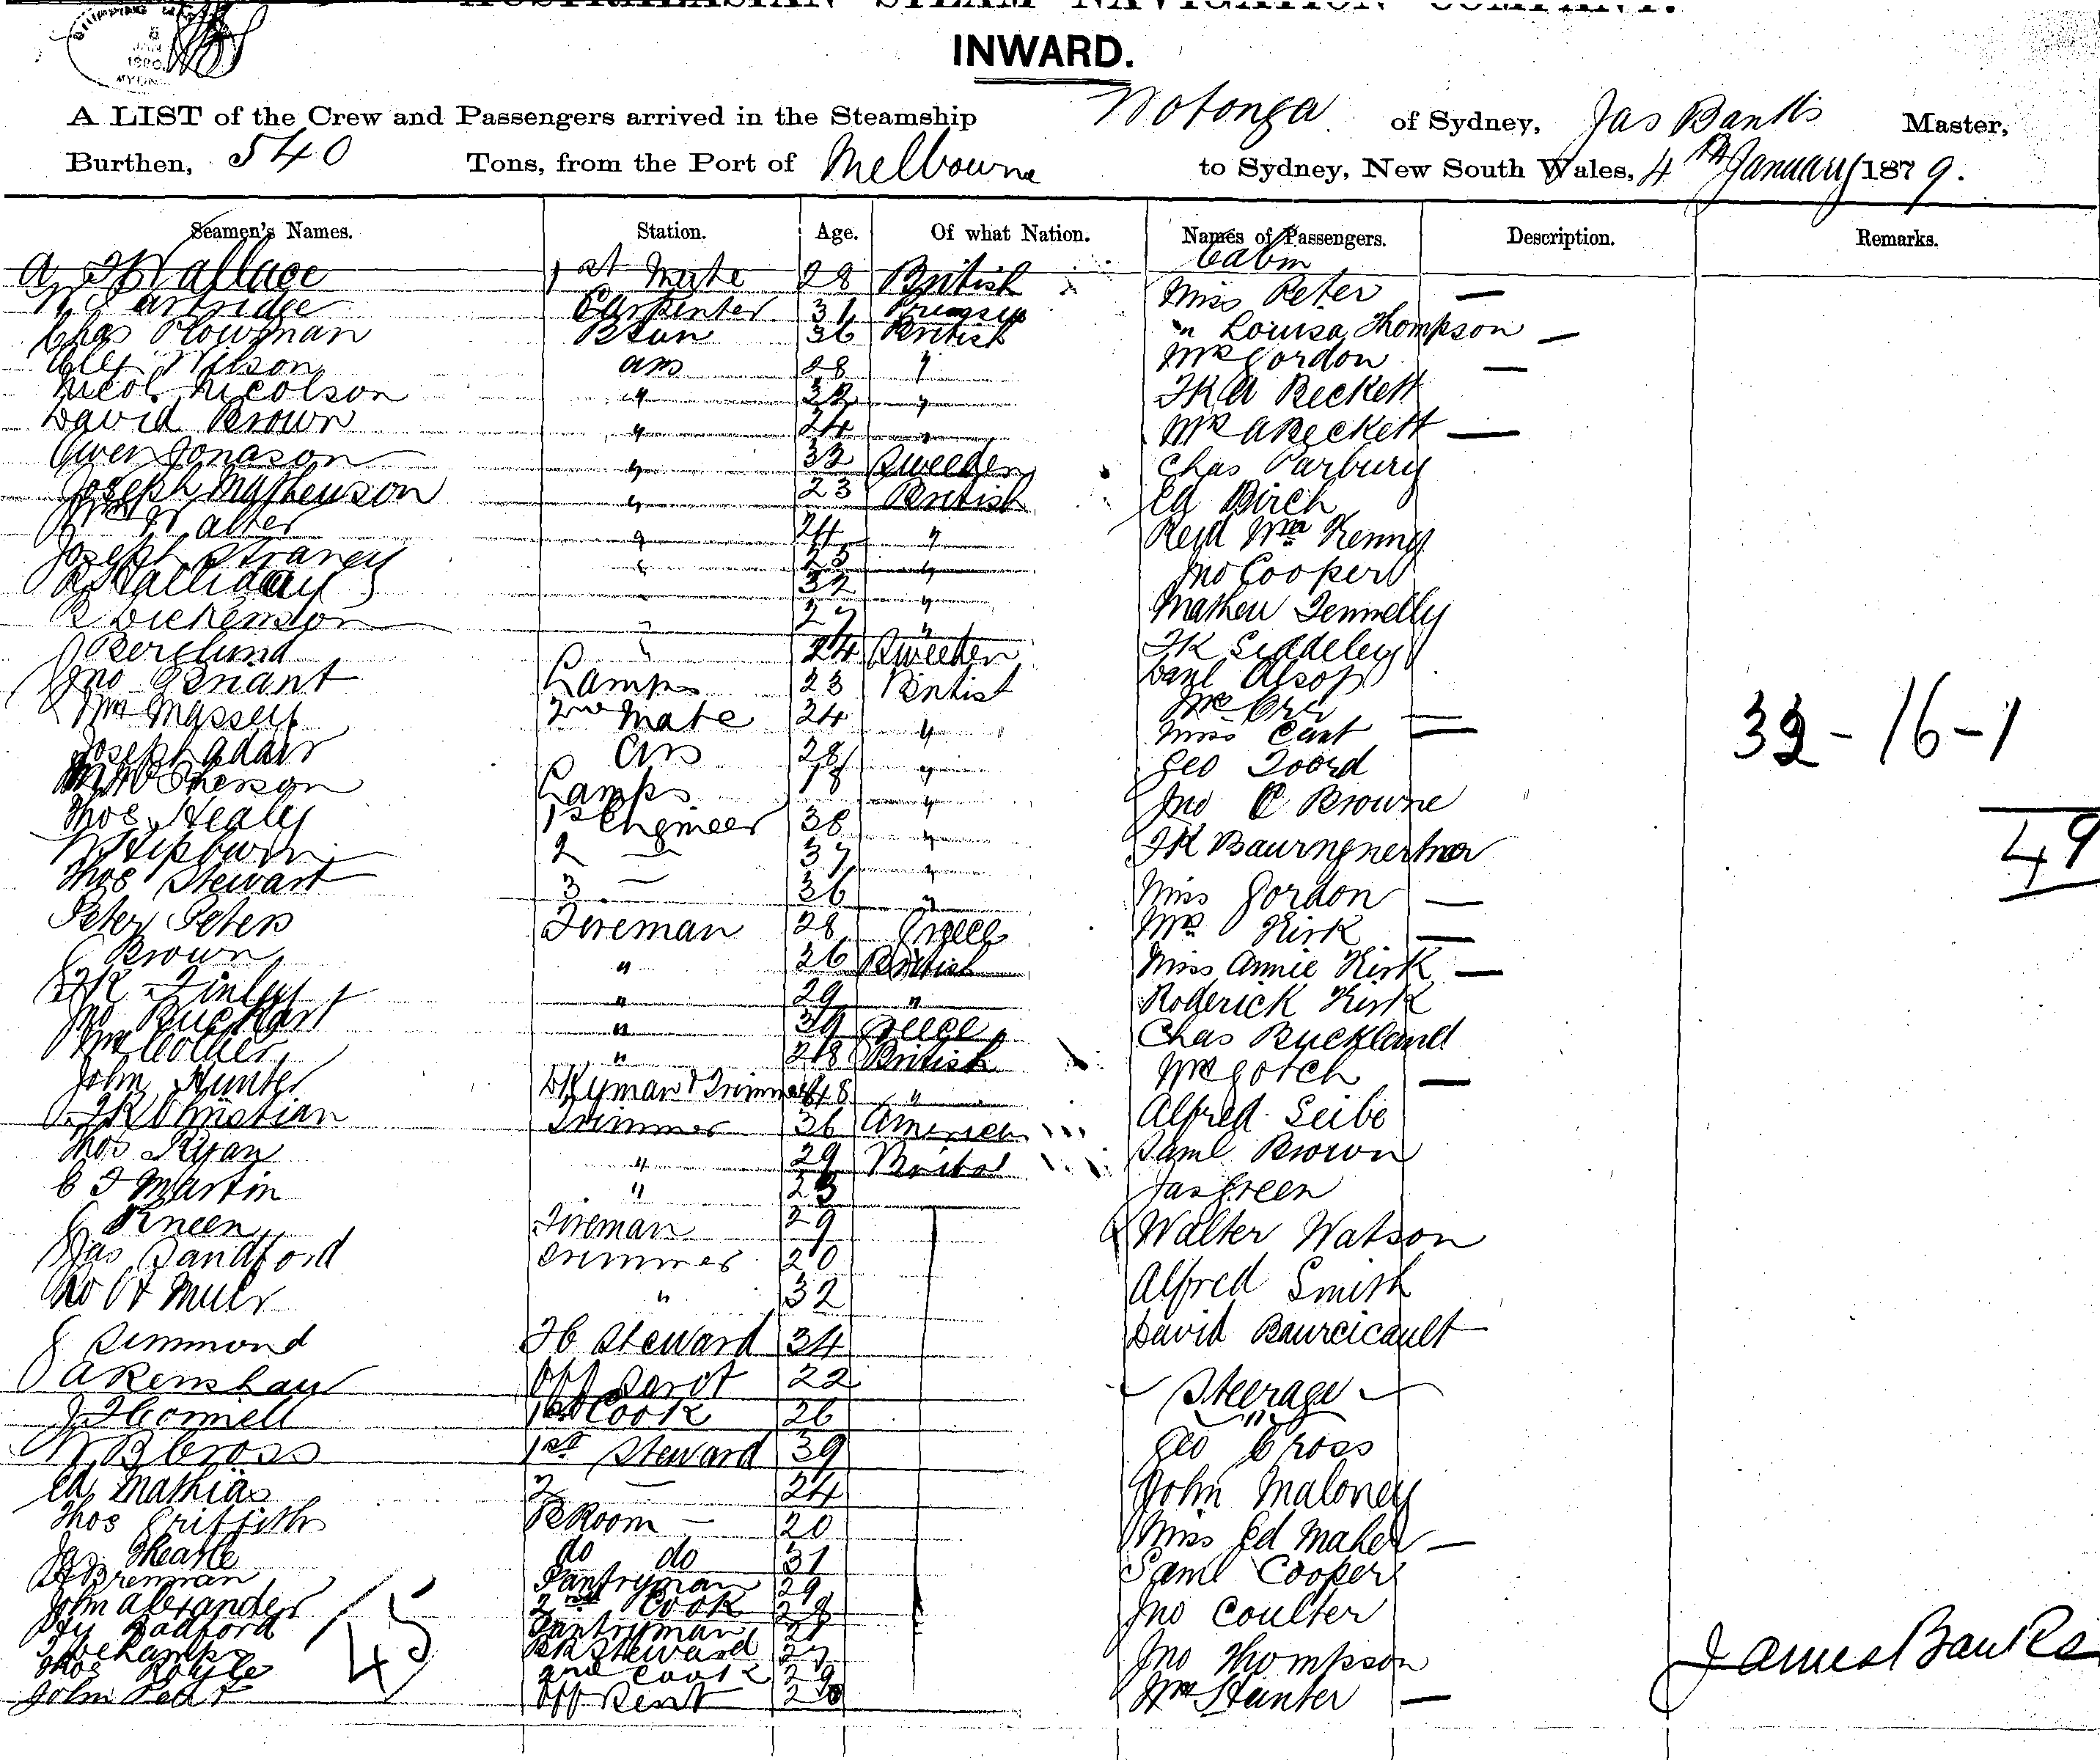 AUSTRALASIAN STEAM NAVIGATION COMPANY.
INWARD.
A LIST of the Crew and Passengers arrived in the Steamship Wotonga of Sydney, Jas Banks Master,
Burthen, 540 Tons, from the Port of Melbourne to Sydney, New South Wales, 4th January 1879.
Seamen's Names. Station. Age. Of what Nation. Names of Passengers. Description. Remarks.
Cabin
A Wallace 1st Mate 28 British Miss Peter —
W Partridge Carpenter 31 Prussia " Louisa Thompson —
Chas Plowman Bsun 36 British Mrs Gordon —
Alex Wilson ABs 28 " FK A Beckett
Nicol Nicolson " 32 " Mrs ABeckett —
David Brown " 24 " Chas Parbury
Owen Jonason " 32 Sweeden Ed Birch
Joseph Mathewson " 23 British Revd Wm Kenny
Wm Walter " 24 " Jno Cooper
Joseph " 25 " Mathew Fennelly
Halliday " 32 " FK Siddeley
R Dickenson " 27 " Danl Alsop
J Berglund " 24 Sweeden Mrs Orr —
Jno Briant Lamps 23 British Miss Cant —
Wm Massey 2nd Mate 24 " Geo Foord
Joseph Adair ABs 28 " Jno C Browne
McPherson Lamps 18 " FK
Thos Healy 1st Engineer 38 " Miss Gordon —
W Hepburn 2 — 37 " Mrs Kirk —
Thos Stewart 3 — 36 " Miss Annie Kirk —
Peter Peters Fireman 28 Greece Roderick Kirk
C Brown " 26 British Chas Buckland
FK Finlay " 29 " Mrs Gotch —
Jno " 39 Greece Alfred Seibe
Wm Collier " 28 British Saml Brown
John Hunter Dkyman & Trimmer 48 " Jas Green
FK Christian Trimmer 36 America Walter Watson
Thos Ryan " 29 British Alfred Smith
C F Martin " 23 David Bourcicault
C Kneen Fireman 29
Jas Sandford Trimmer 20
Robt Muir " 32
J Simmond FC Steward 34
A Renshaw Off Servt 22 Steerage
J F Connell 1st Cook 26 Geo Cross
W B Cross 1st Steward 39 John Maloney
Ed Mathias 2 — 24 Miss Ed Maher —
Thos Griffiths BRoom — 20 Saml Cooper
Jas Thearle do do 31 Jno Coulter
Brennan Pantryman 29 Jno Thompson
John Alexander 2nd Cook 28 Wm Hunter —
Hy Radford Pantryman 21
BR Steward 27
Thos Royle 2nd Cook 29
John Off Servt 20
45
32-16-1
49
James Banks